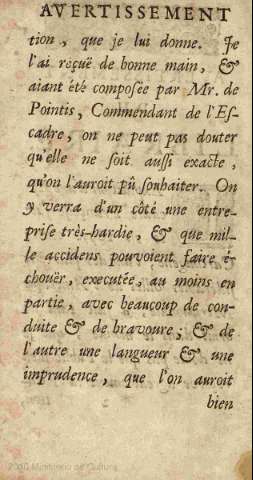 AVERTISSEMENT
tion, que je lui donne. Je
l'ai reçuë de bonne main, &
aiant été composée par Mr. de
Pointis, Commendant de l'Es-
cadre, on ne peut pas douter
qu'elle ne soit aussi exacte,
qu'on l'auroit pû souhaiter. On
y verra d'un côté une entre-
prise très-hardie, & que mil-
le accidens pouvoient faire é-
chouër, executée, au moins en
partie, avec beaucoup de con-
duite & de bravoure; & de
l'autre une langueur & une
imprudence, que l'on auroit
bien
2010 Ministerio de Cultura